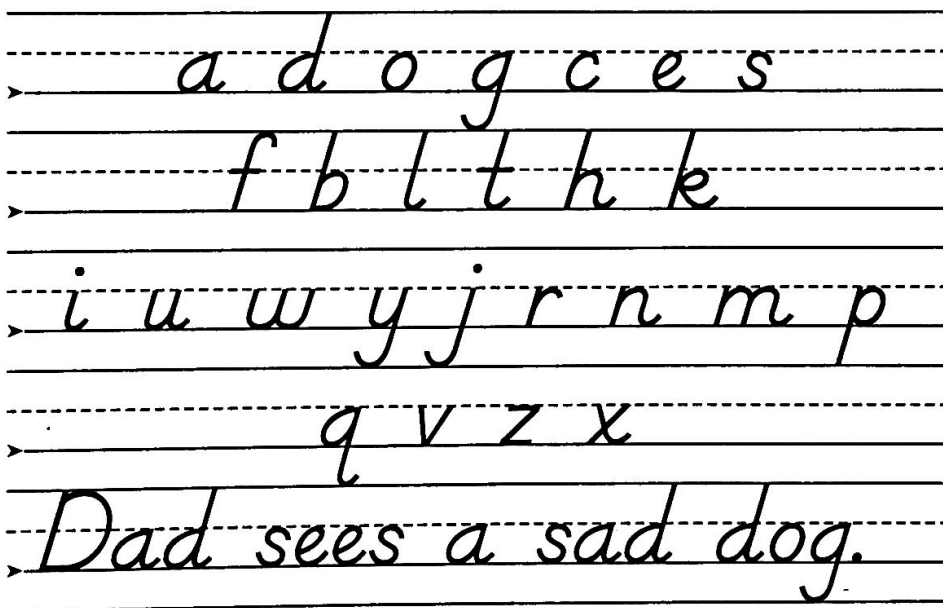 a d o g c e s
f b l t h k
i u w y j r n m p
q v z x
Dad sees a sad dog.